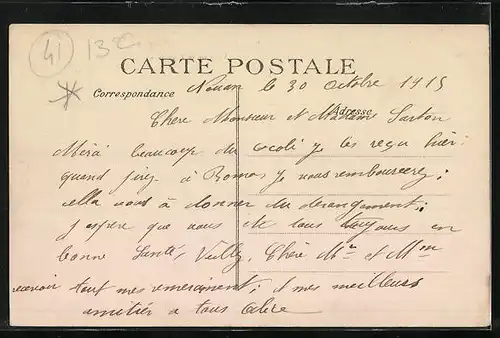 41 13 c
CARTE POSTALE
Correspondance
Adresse
Nouan le 30 octobre 1915
Chere Monsieur et Madame Sarton
Mersi beaucoup du coli je les reçu hier;
quand jirez à Romo, je vous rembourcerez;
ella vous à donner du derangement;
j espere que vous ete tous toujours en
bonne Santé, Veillez, Chère Mr et Mme
recevoir tout mes remerciment; et mes meilleurs
amitiér a tous